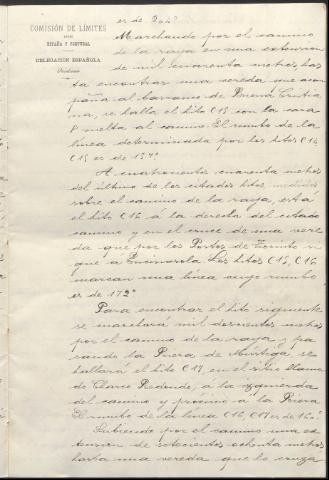 COMISIÓN DE LÍMITES
ENTRE
ESPAÑA Y PORTUGAL
DELEGACIÓN ESPAÑOLA
es de 204º
Marchando por el camino
de la raya en una extension
de mil cuarenta metros has-
ta encontrar una vereda que acom-
paña al barranco de Buena Cristia-
na, se halla el hito C 15 con la cara
P vuelta al camino. El rumbo de la
linea determinada por los hitos C 14
C 15 es de
A cuatrocientos cuarenta metros
del último de los citados hitos medidos
sobre el camino de la raya, está
el hito C 16 á la derecha del citado
camino y en el cruce de una vere-
da que por los Portos de vi-
que á Encinasola. Los hitos C 15, C 16
marcan una línea cuyo rumbo
es de 172º
Para encontrar el hito siguiente
se marchará mil doscientos metros
por el camino de la raya y pa-
sando la de se
hallará el hito C 17 en el sitio llama-
do Redondo, á la izquierda
del camino y próximo á la
El rumbo de la línea C 16, C 17 es de
Subiendo por el camino una ex-
tension de setecientos ochenta metros
hasta una vereda que lo cruza